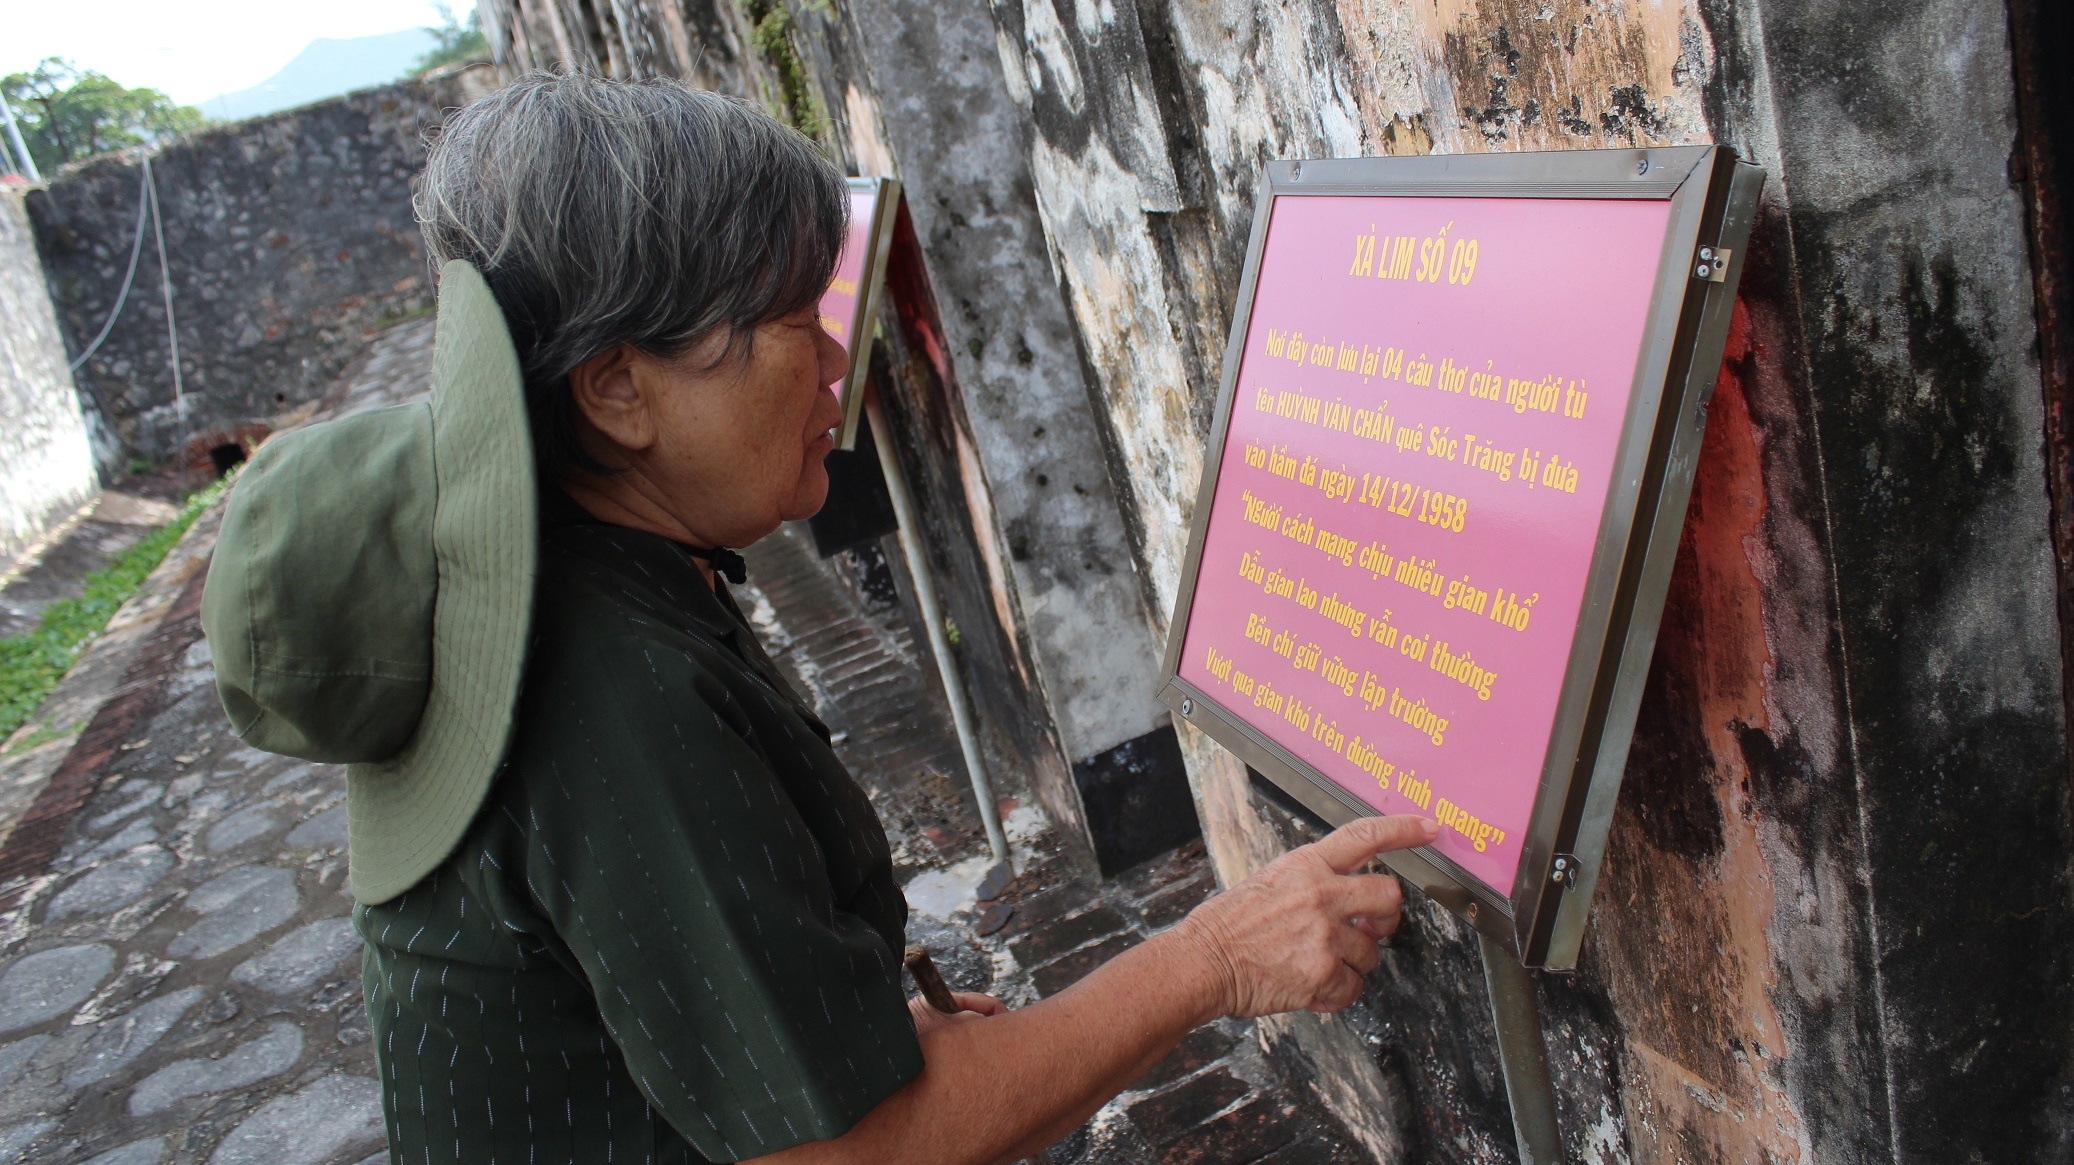 XÀ LIM SỐ 09
Nơi đây còn lưu lại 04 câu thơ của người tù
tên HUỲNH VĂN CHẨN quê Sóc Trăng bị đưa
vào hầm đá ngày 14/12/1958
“Người cách mạng chịu nhiều gian khổ
Dẫu gian lao nhưng vẫn coi thường
Bền chí giữ vững lập trường
Vượt qua gian khó trên đường vinh quang”